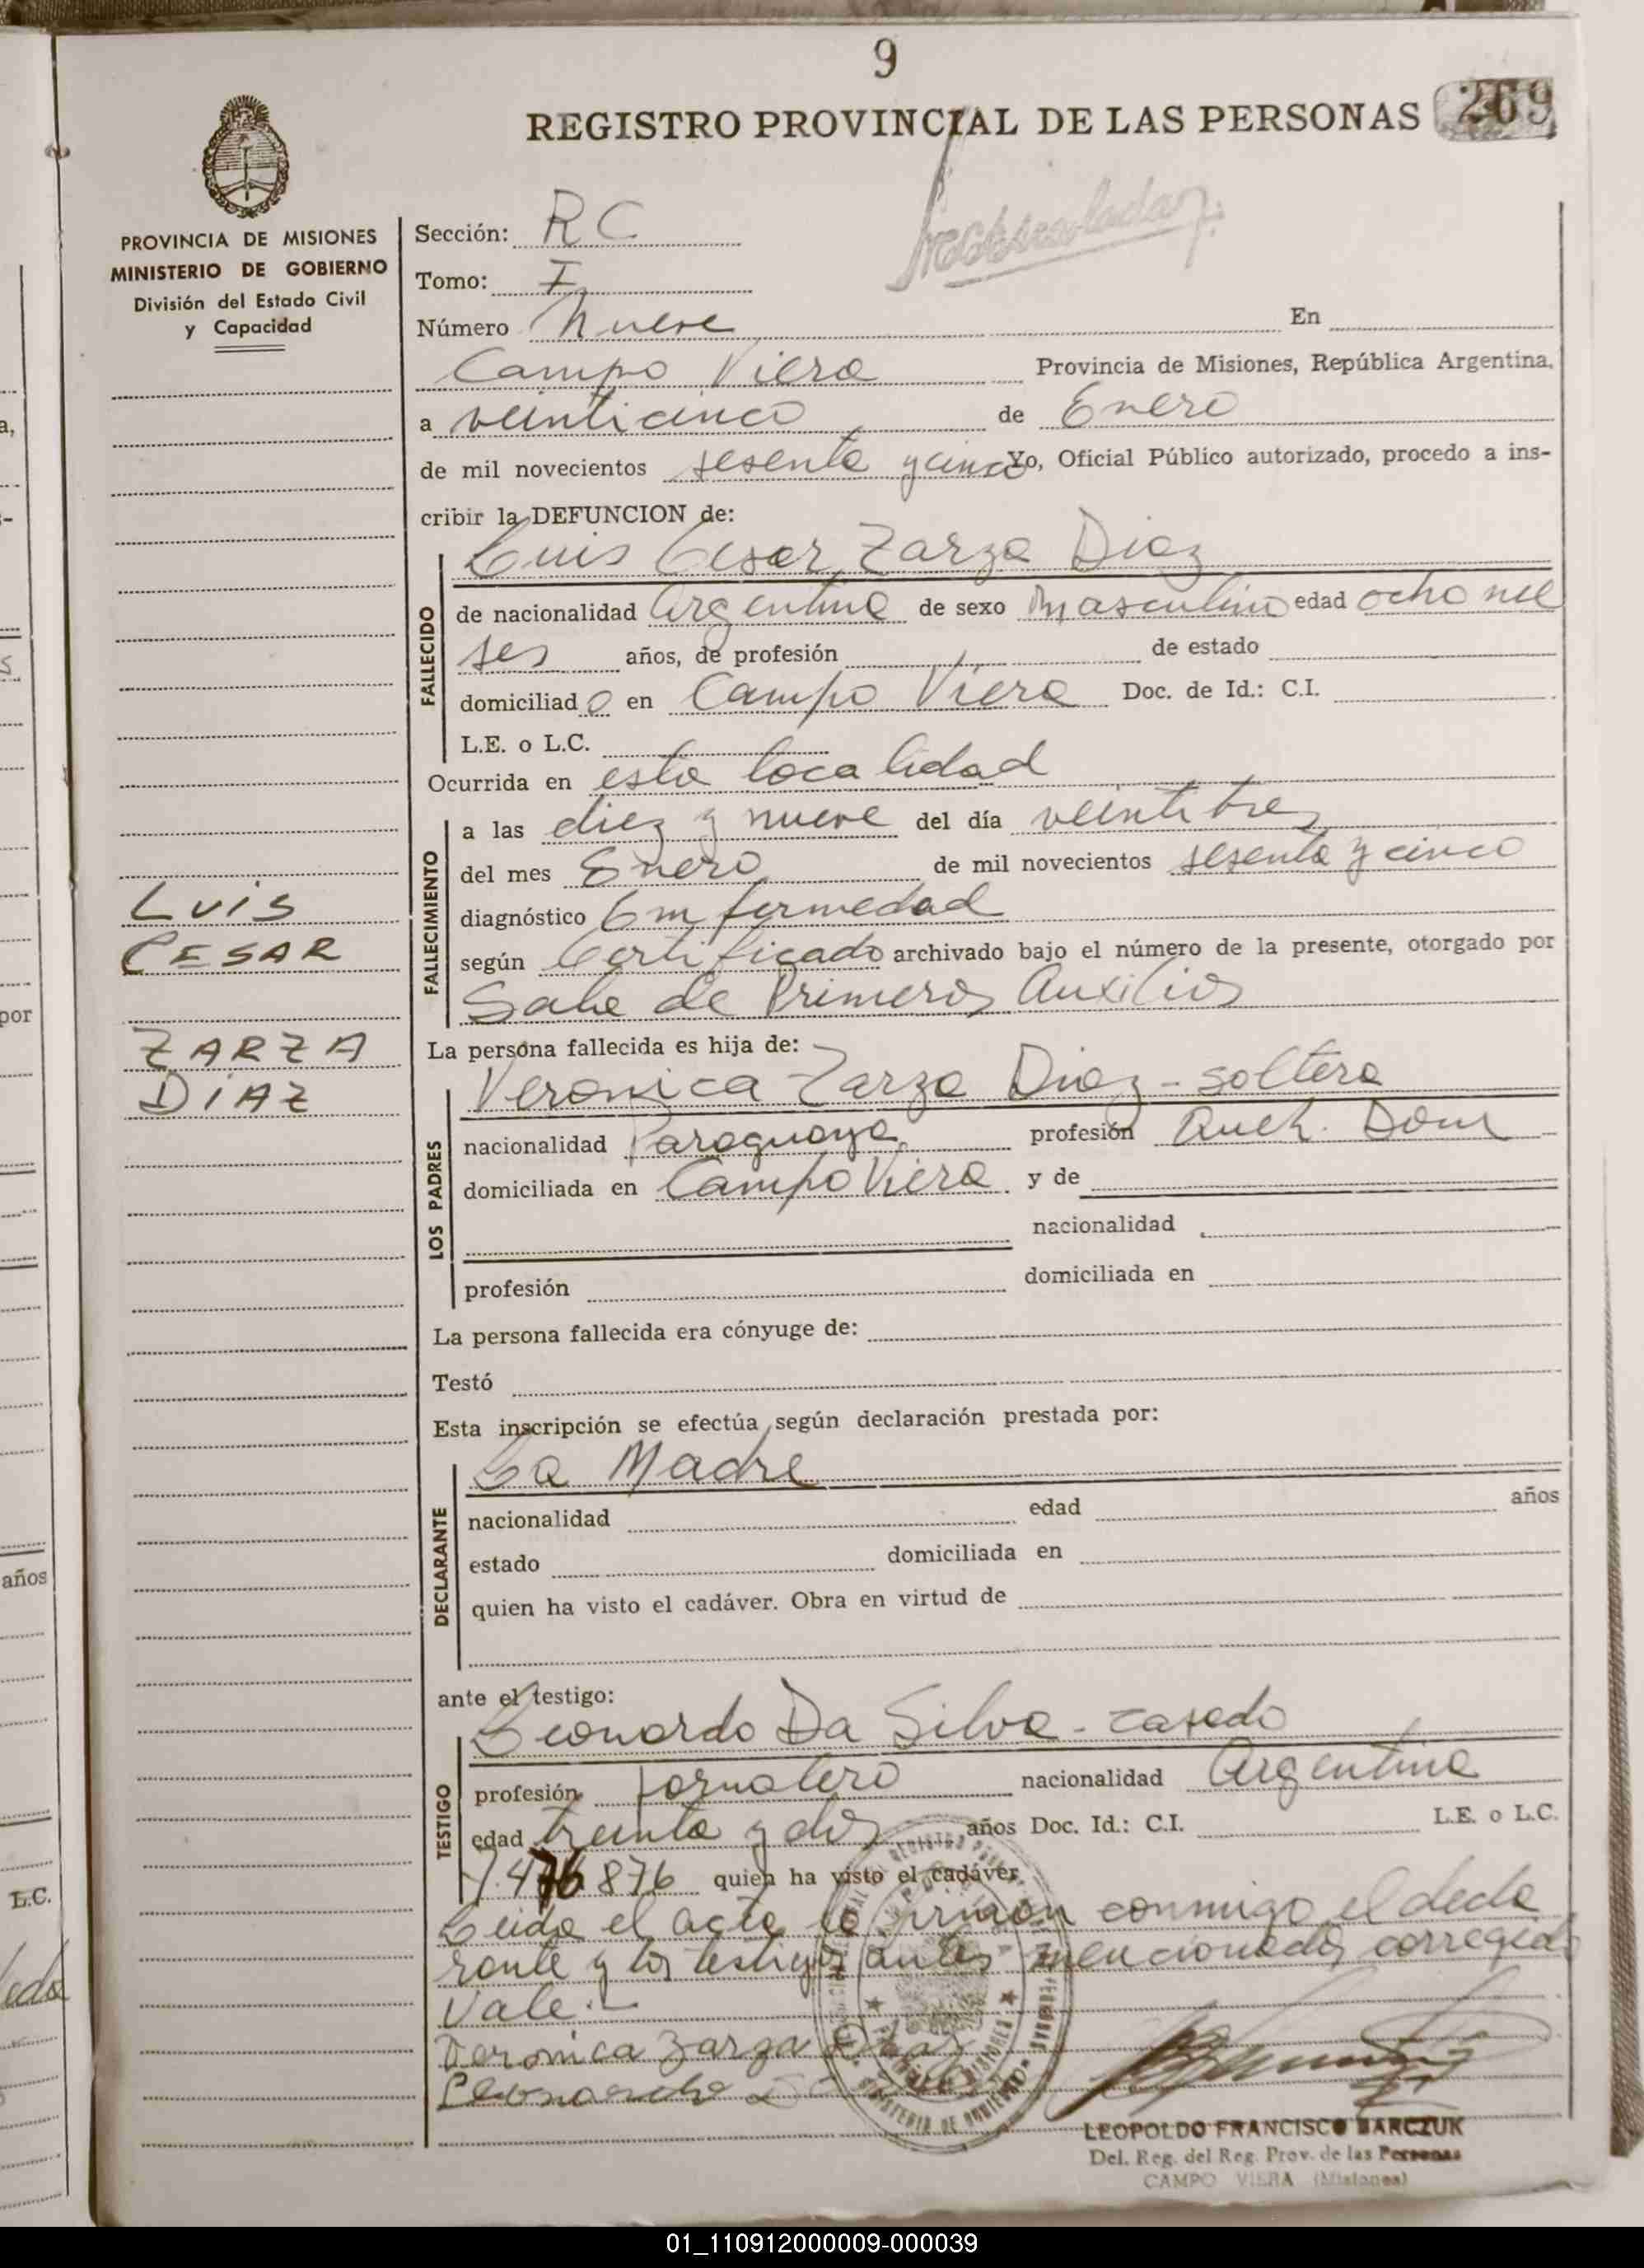 9
REGISTRO PROVINCIAL DE LAS PERSONAS 269
PROVINCIA DE MISIONES
MINISTERIO DE GOBIERNO
División del Estado Civil
y Capacidad
Sección: R C
Tomo: I
Número Nueve En
Campo Viera Provincia de Misiones, República Argentina,
a veinticinco de Enero
de mil novecientos sesenta y cinco Yo, Oficial Público autorizado, procedo a ins-
cribir la DEFUNCION de:
Luis Cesar Zarza Diaz
FALLECIDO
de nacionalidad Argentina de sexo Masculino edad ocho me
ses años, de profesión de estado
domiciliad o en Campo Viera Doc. de Id.: C.I.
L.E. o L.C.
Ocurrida en esta localidad
FALLECIMIENTO
a las diez y nueve del día veintitres
del mes Enero de mil novecientos sesenta y cinco
diagnóstico Emfermedad
según Certificado archivado bajo el número de la presente, otorgado por
Sala de Primeros Auxilios
LUIS
CESAR
ZARZA
DIAZ
La persona fallecida es hija de:
LOS PADRES
Veronica Zarza Diaz - soltera
nacionalidad Paraguaya profesión Queh. Dom
domiciliada en Campo Viera y de
nacionalidad
profesión domiciliada en
La persona fallecida era cónyuge de:
Testó
Esta inscripción se efectúa según declaración prestada por:
DECLARANTE
La Madre
nacionalidad edad años
estado domiciliada en
quien ha visto el cadáver. Obra en virtud de
ante el testigo:
TESTIGO
Leonardo Da Silva - casado
profesión Jornalero nacionalidad Argentina
edad treinta y dos años Doc. Id.: C.I. L.E. o L.C.
7.476876 quien ha visto el cadáver.
Leida el acta la firman conmigo el decla
rante y los testigos antes mencionados corregido
Vale.-
Veronica Zarza Diaz
Leonardo
LEOPOLDO FRANCISCO BARCZUK
Del. Reg. del Reg. Prov. de las Personas
CAMPO VIERA (Misiones)
01_110912000009-000039